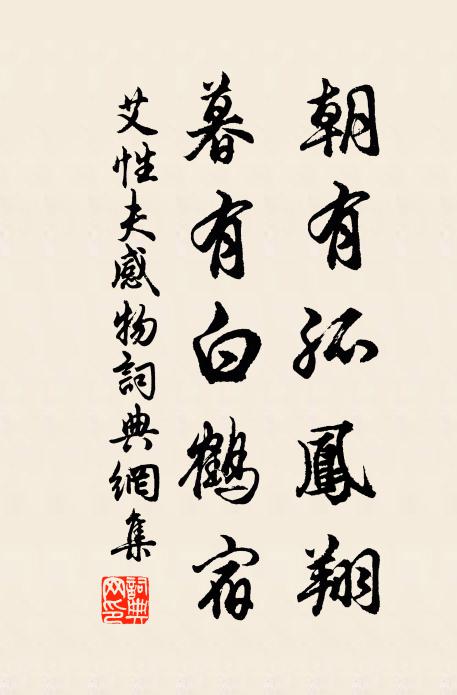 朝有孤鳳翔
暮有白鶴宿
艾性夫感物詞典網集
詞典網印